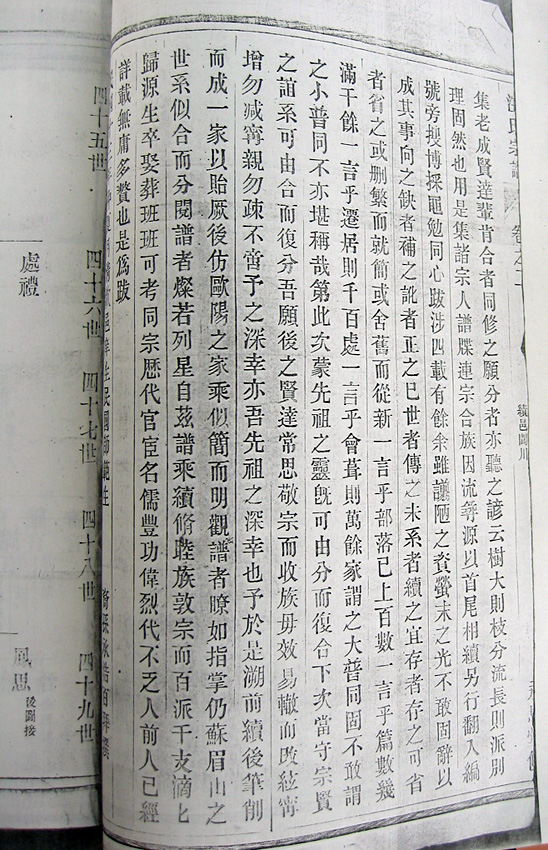 集老成賢達輩肯合者同修之願分者亦聽之諺云樹大則枝分流長則派別
理固然也用是集諸宗人譜牒連宗合族因流尋源以首尾相續另行翻入編
號旁搜博採黽勉同心跋涉四載有餘余雖譾陋之資螢末之光不敢固辭以
成其事向之缺者補之訛者正之已世者傳之未系者續之宜存者存之可省
者省之或刪繁而就簡或舍舊而從新一言乎部落已上百數一言乎篇數幾
滿千餘一言乎遷居則千百處一言乎會葺則萬餘家謂之大普同固不敢謂
之小普同不亦堪稱哉第此次蒙先祖之靈旣可由分而復合下次當守宗賢
之誼系可由合而復分吾願後之賢達常思敬宗而收族毋效易轍而改絃寧
增勿減寧親勿疎不啻予之深幸亦吾先祖之深幸也予於是溯前續後筆削
而成一家以貽厥後仿歐陽之家乘似簡而明觀譜者瞭如指掌仍蘇眉山之
世系似合而分閱譜者燦若列星自茲譜乘續脩睦族敦宗而百派千支滴匕
歸源生卒娶葬班班可考同宗歷代官宦名儒豐功偉烈代不乏人前人已經
詳載無庸多贅也是爲跋
氏宗譜
卷之
績邑
四十五世
四十六世
四十七世
四十八世
四十九世
處禮
風思
後嗣接